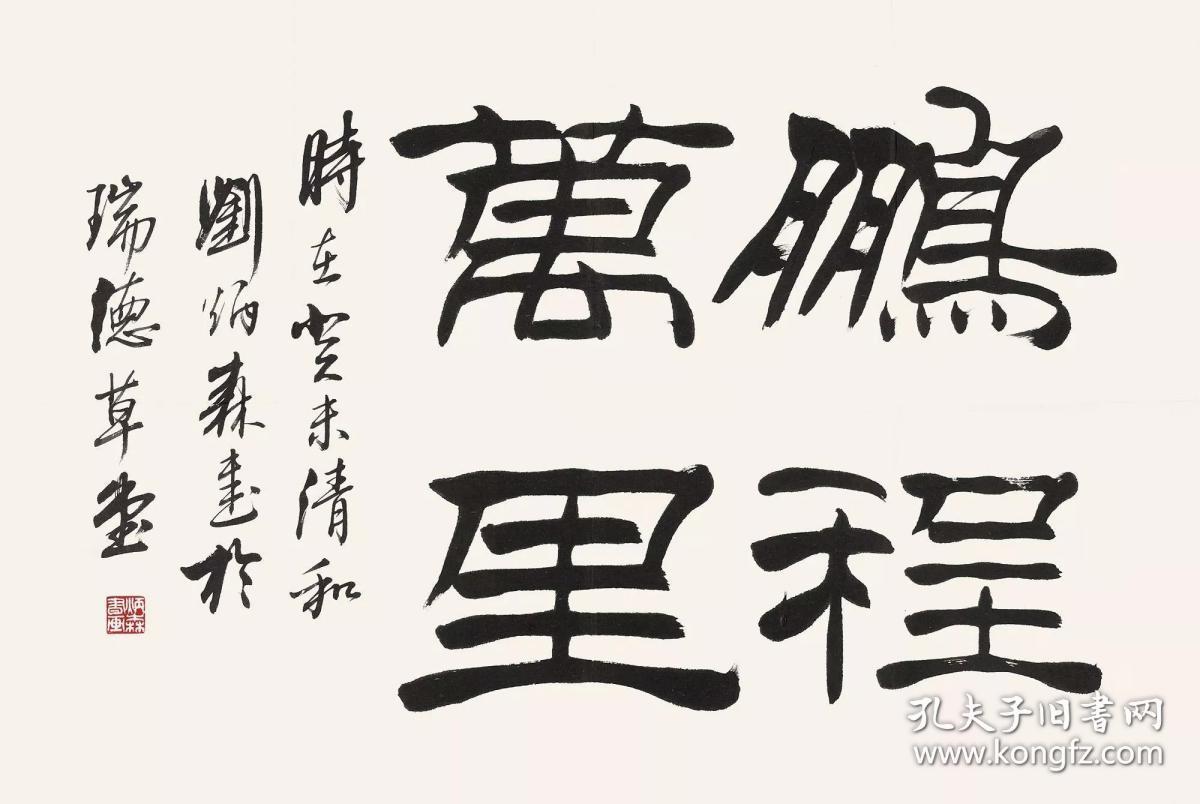 鵬程
萬里
時在癸未清和
劉炳森書於
瑞德草堂
炳森書画
孔夫子旧書网
www.kongfz.com